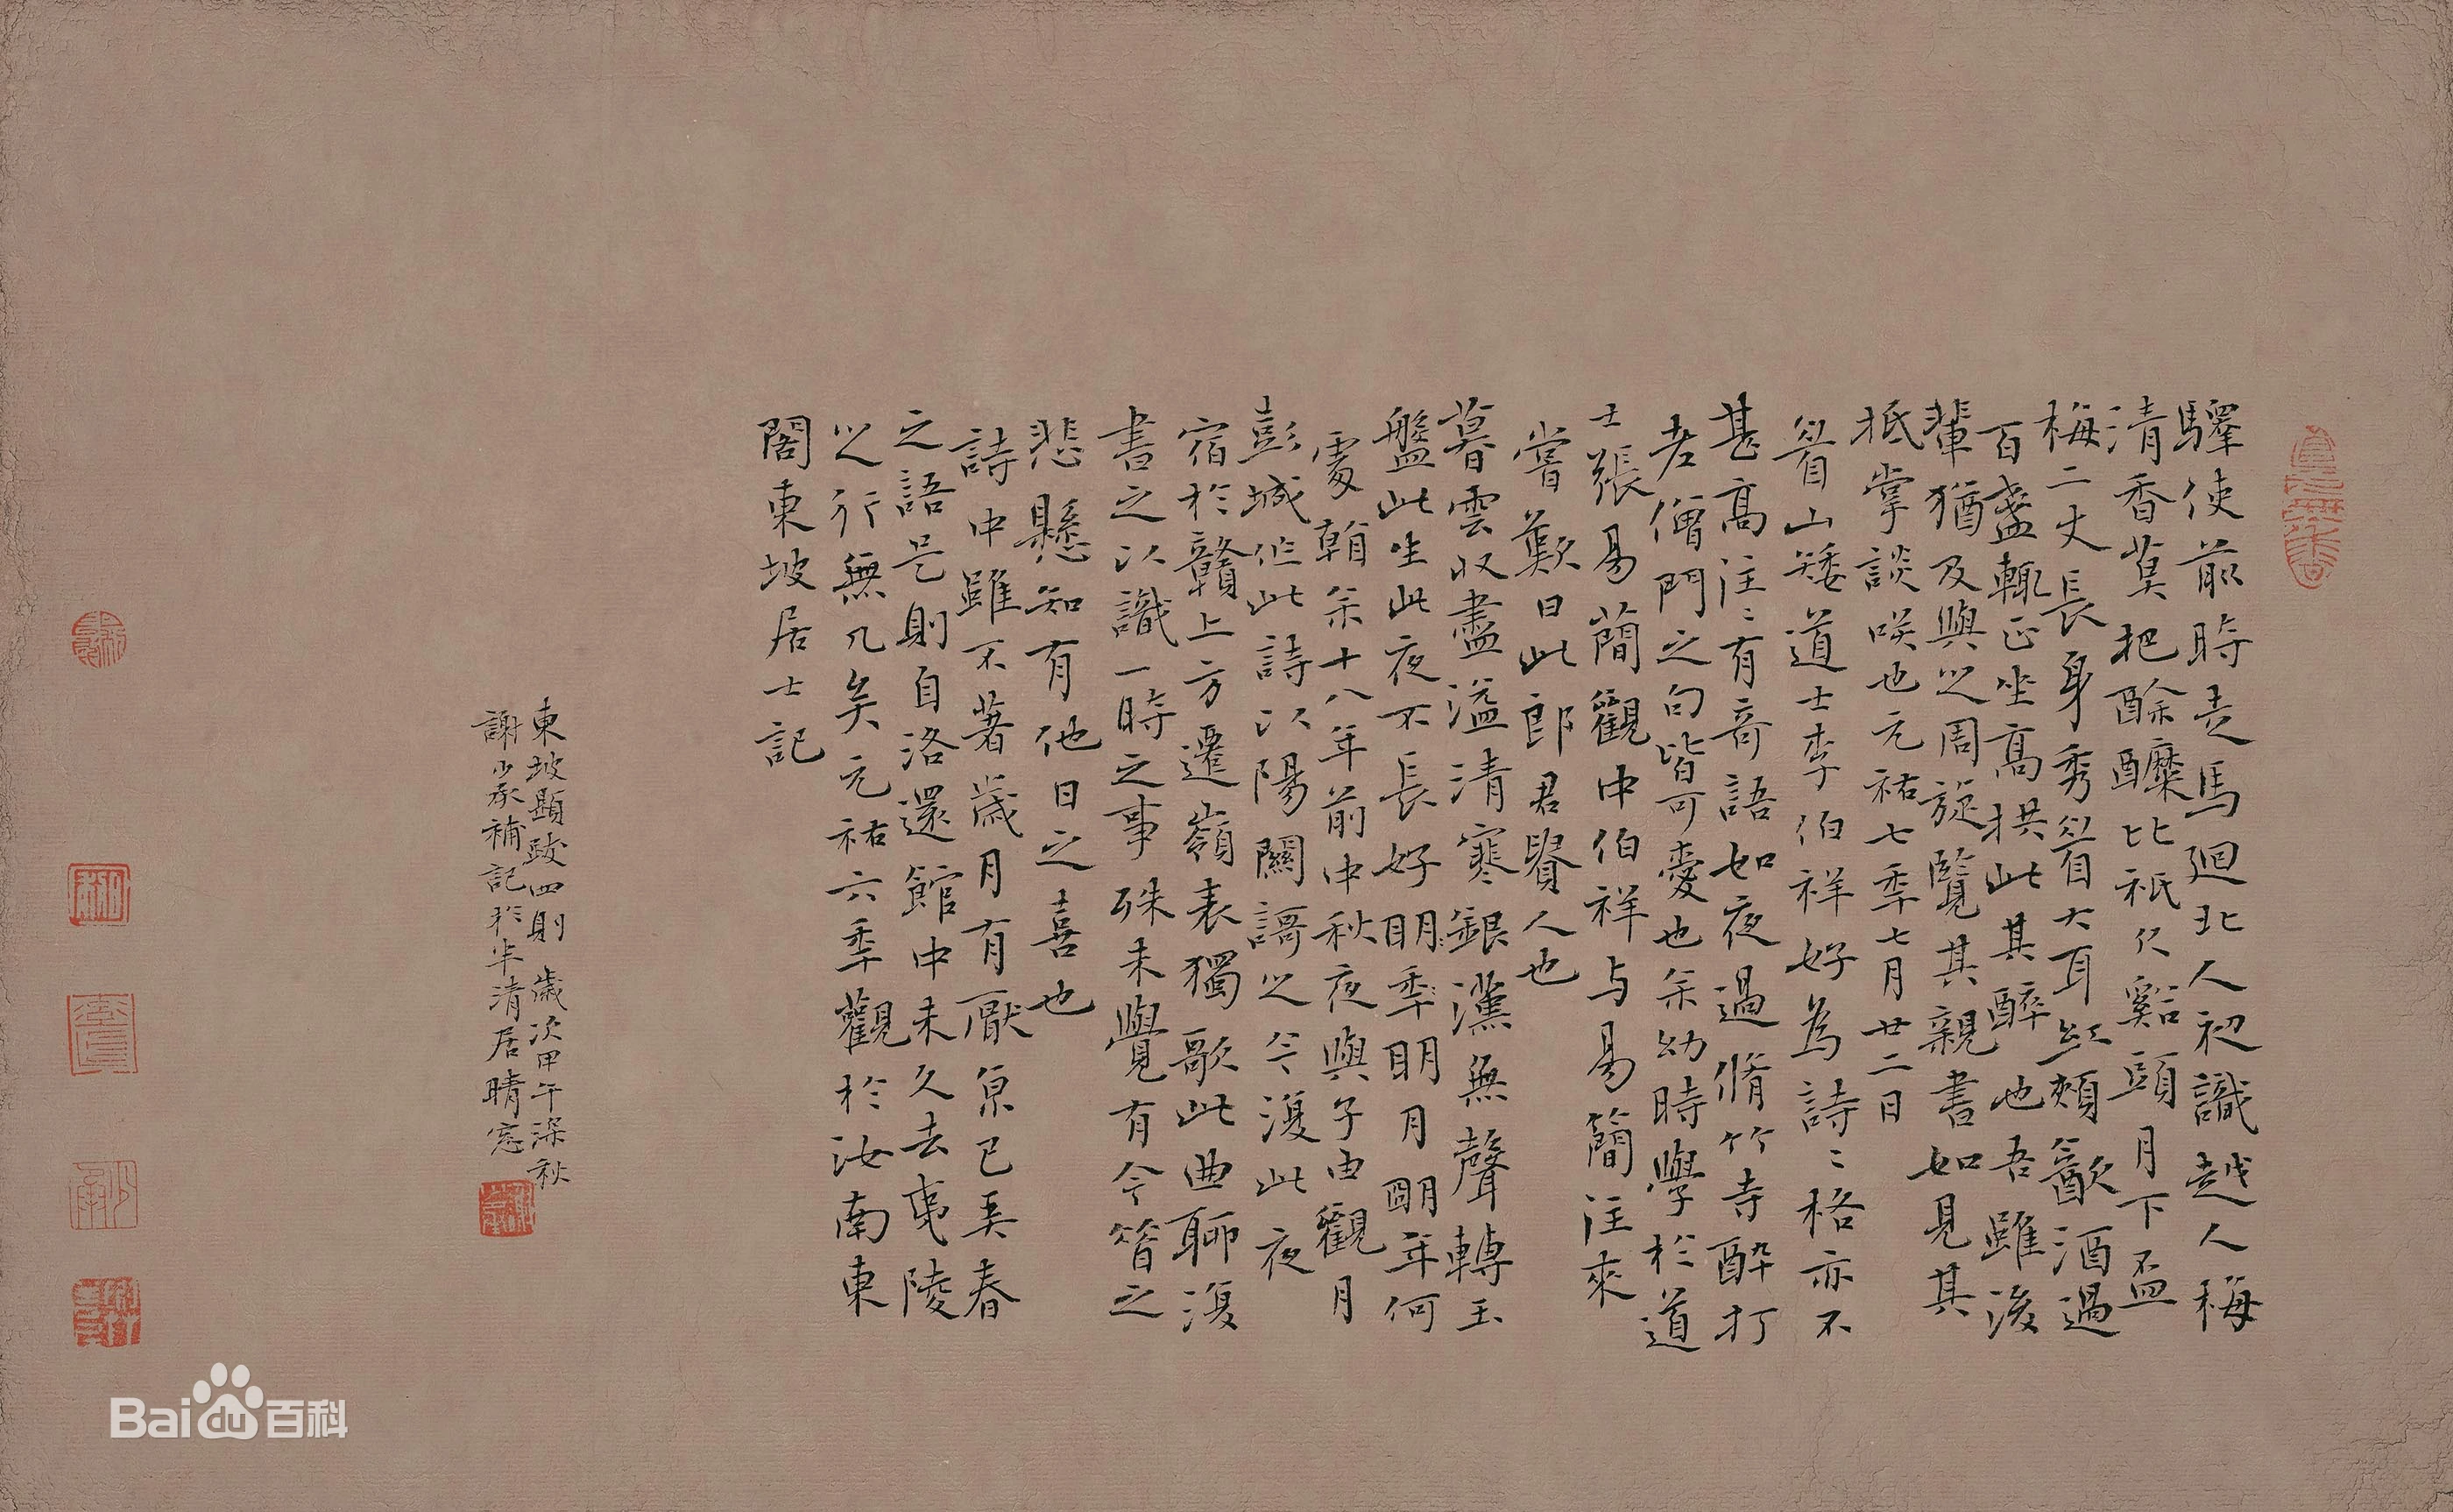 驛使前時走馬迴北人初識越人梅
清香莫把酴醾比衹欠谿頭月下盃
梅二丈長身秀眉大耳紅頰飲酒過
百盞輒正坐高拱此其醉也吾雖後
輩猶及與之周旋覽其親書如見其
抵掌談咲也元祐七季七月廿二日
眉山矮道士李伯祥好為詩〻格亦不
甚高往〻有奇語如夜過脩竹寺醉打
老僧門之句皆可愛也余幼時學於道
士張易簡觀中伯祥与易簡往來
嘗歎曰此郎君貴人也
暮雲收盡溢清寒銀漢無聲轉玉
盤此生此夜不長好明季明月明年何
處看余十八年前中秋夜與子由觀月
彭城作此詩以陽關謌之今復此夜
宿於贛上方遷嶺表獨歌此曲聊復
書之以識一時之事殊未覺有今昝之
悲懸知有他日之喜也
詩中雖不著歲月有厭京已矣春
之語是則自洛還館中未久去夷陵
之行無几矣元祐六季觀於汝南東
閣東坡居士記
東坡題跋四則 歲次甲午深秋
謝少承補記於半清居晴窓
Baidu百科